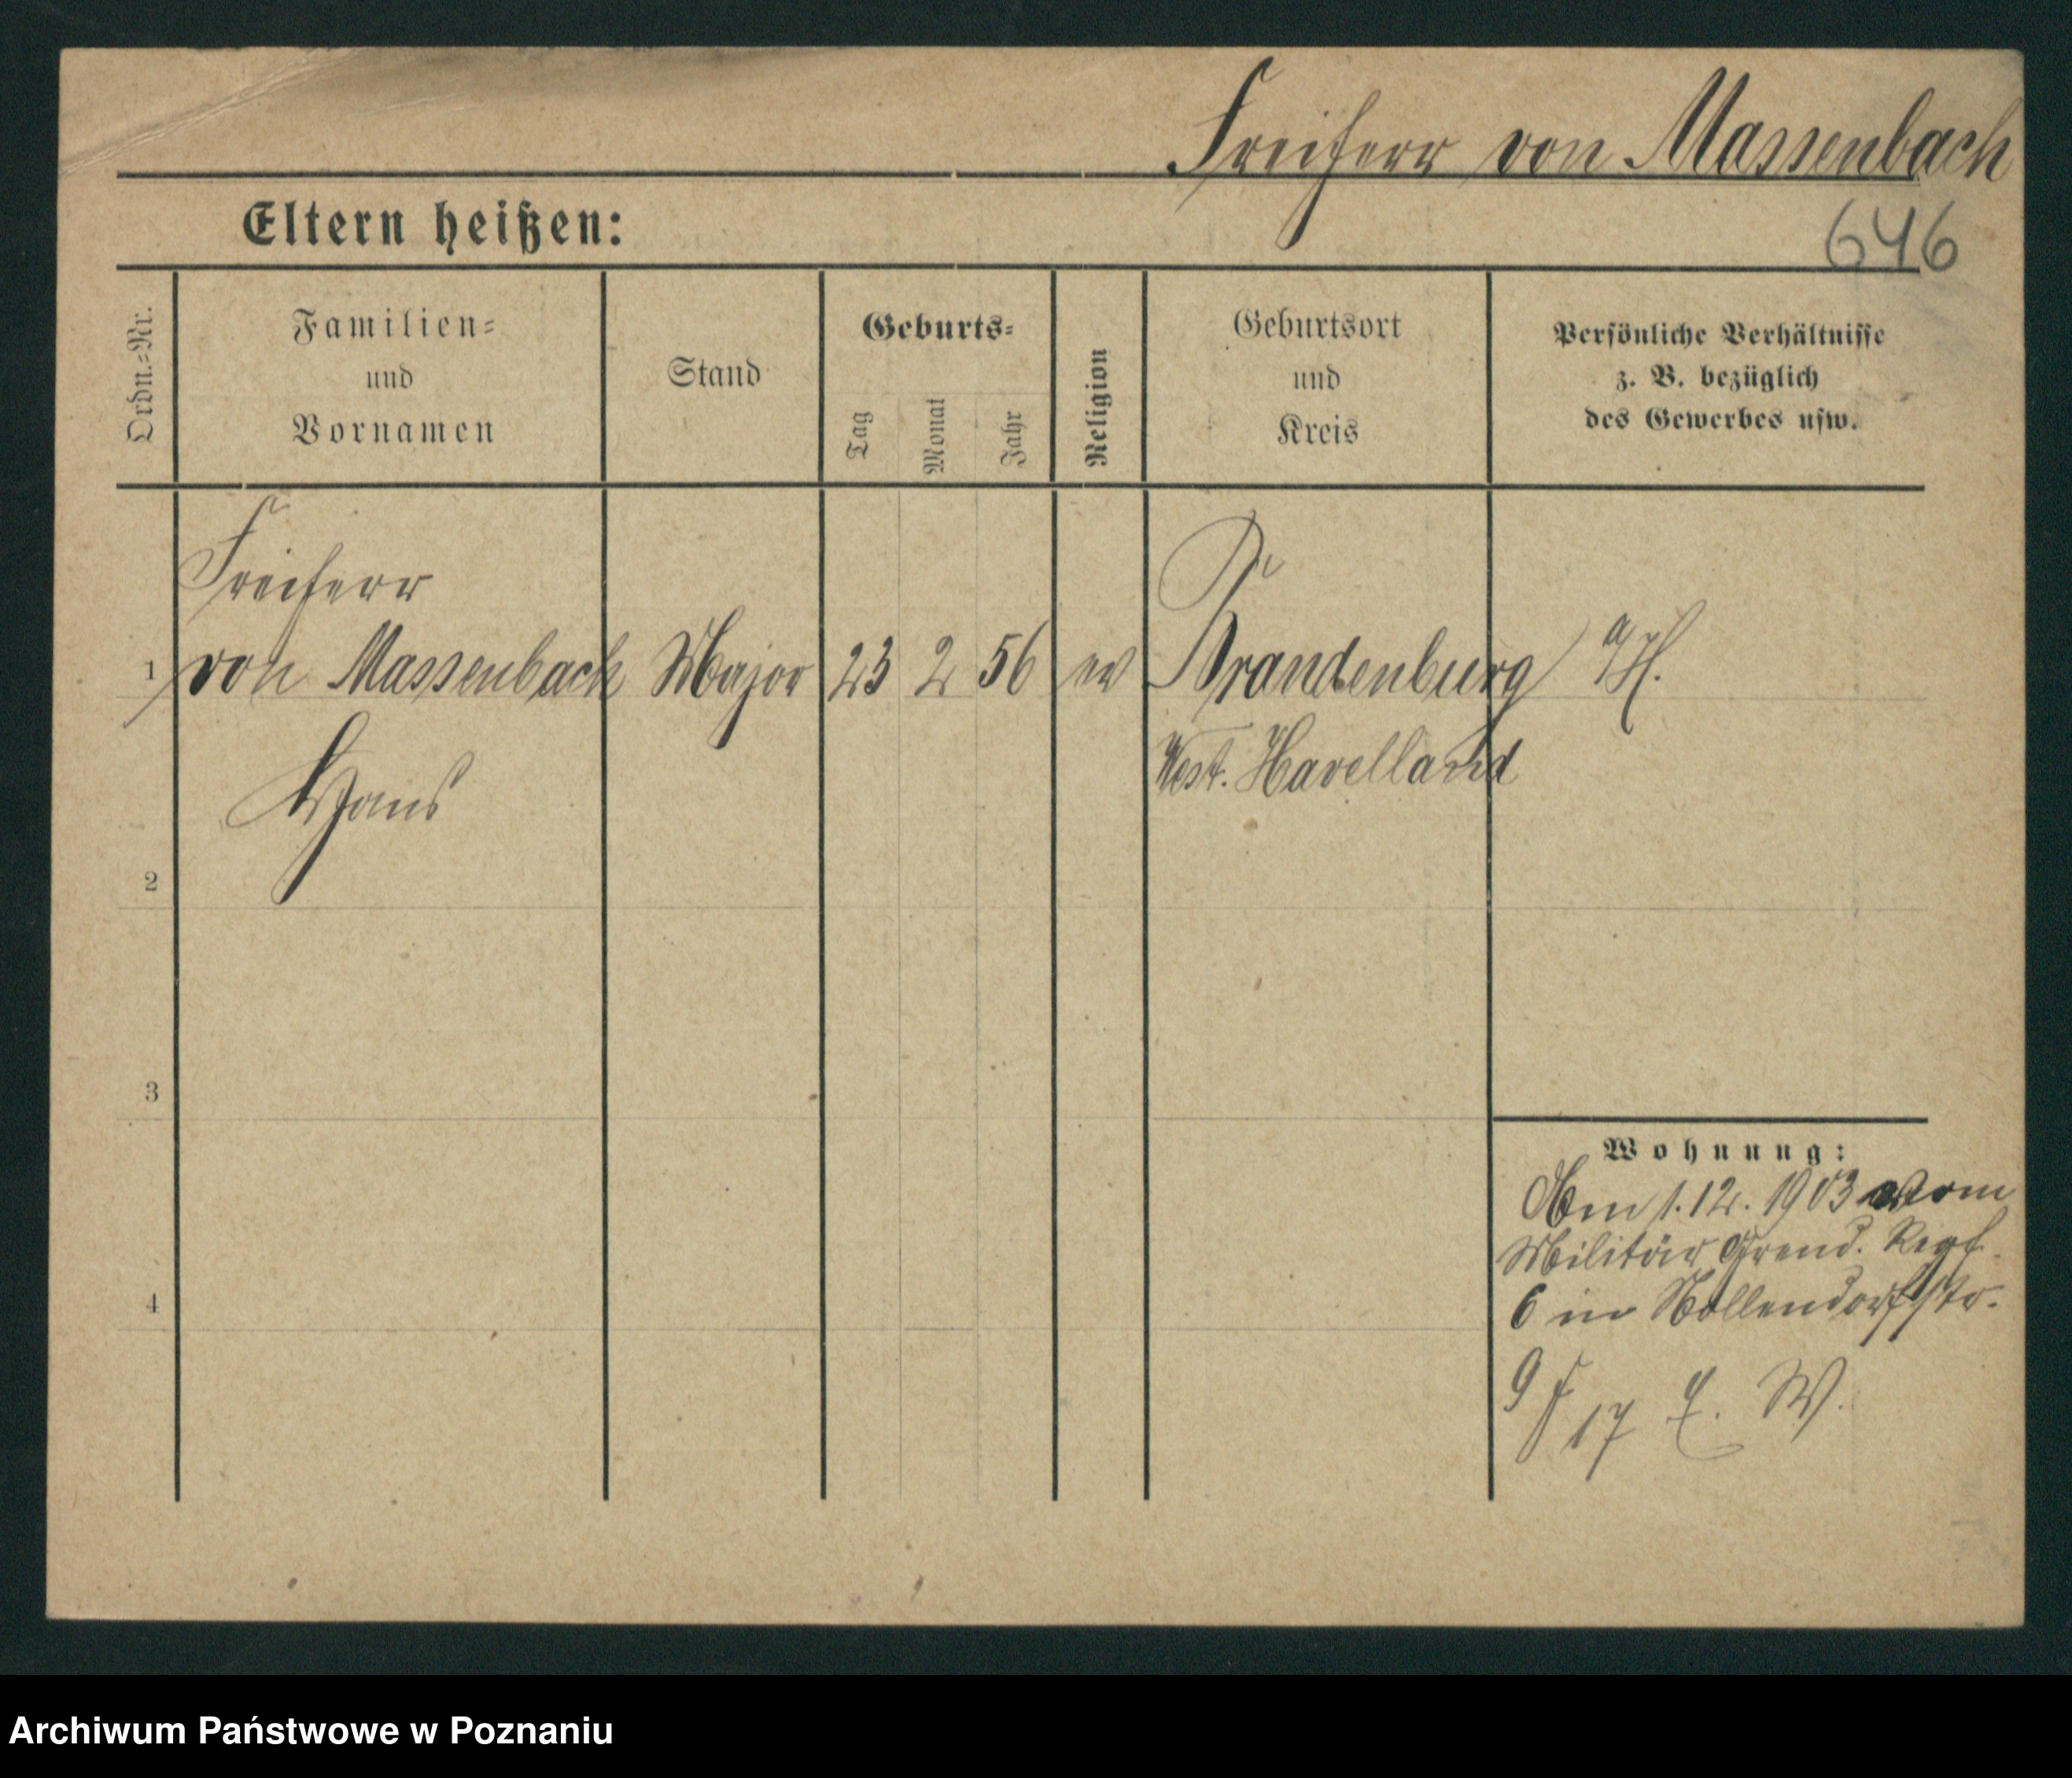 Freiherr von Massenbach
646
Eltern heißen:
Ordn.=Nr.
Familien=
und
Vornamen
Stand
Geburts=
Tag
Monat
Jahr
Religion
Geburtsort
und
Kreis
Persönliche Verhältnisse
z. B. bezüglich
des Gewerbes usw.
Freiherr
1 von Massenbach Major 23 2 56 ev Brandenburg
West. Havelland
Hans
2
3
4
Wohnung:
Am 1.12.1903 vom
Militär Grend. Regt.
6 in Nollendorfstr.
17 E. W.
Archiwum Państwowe w Poznaniu